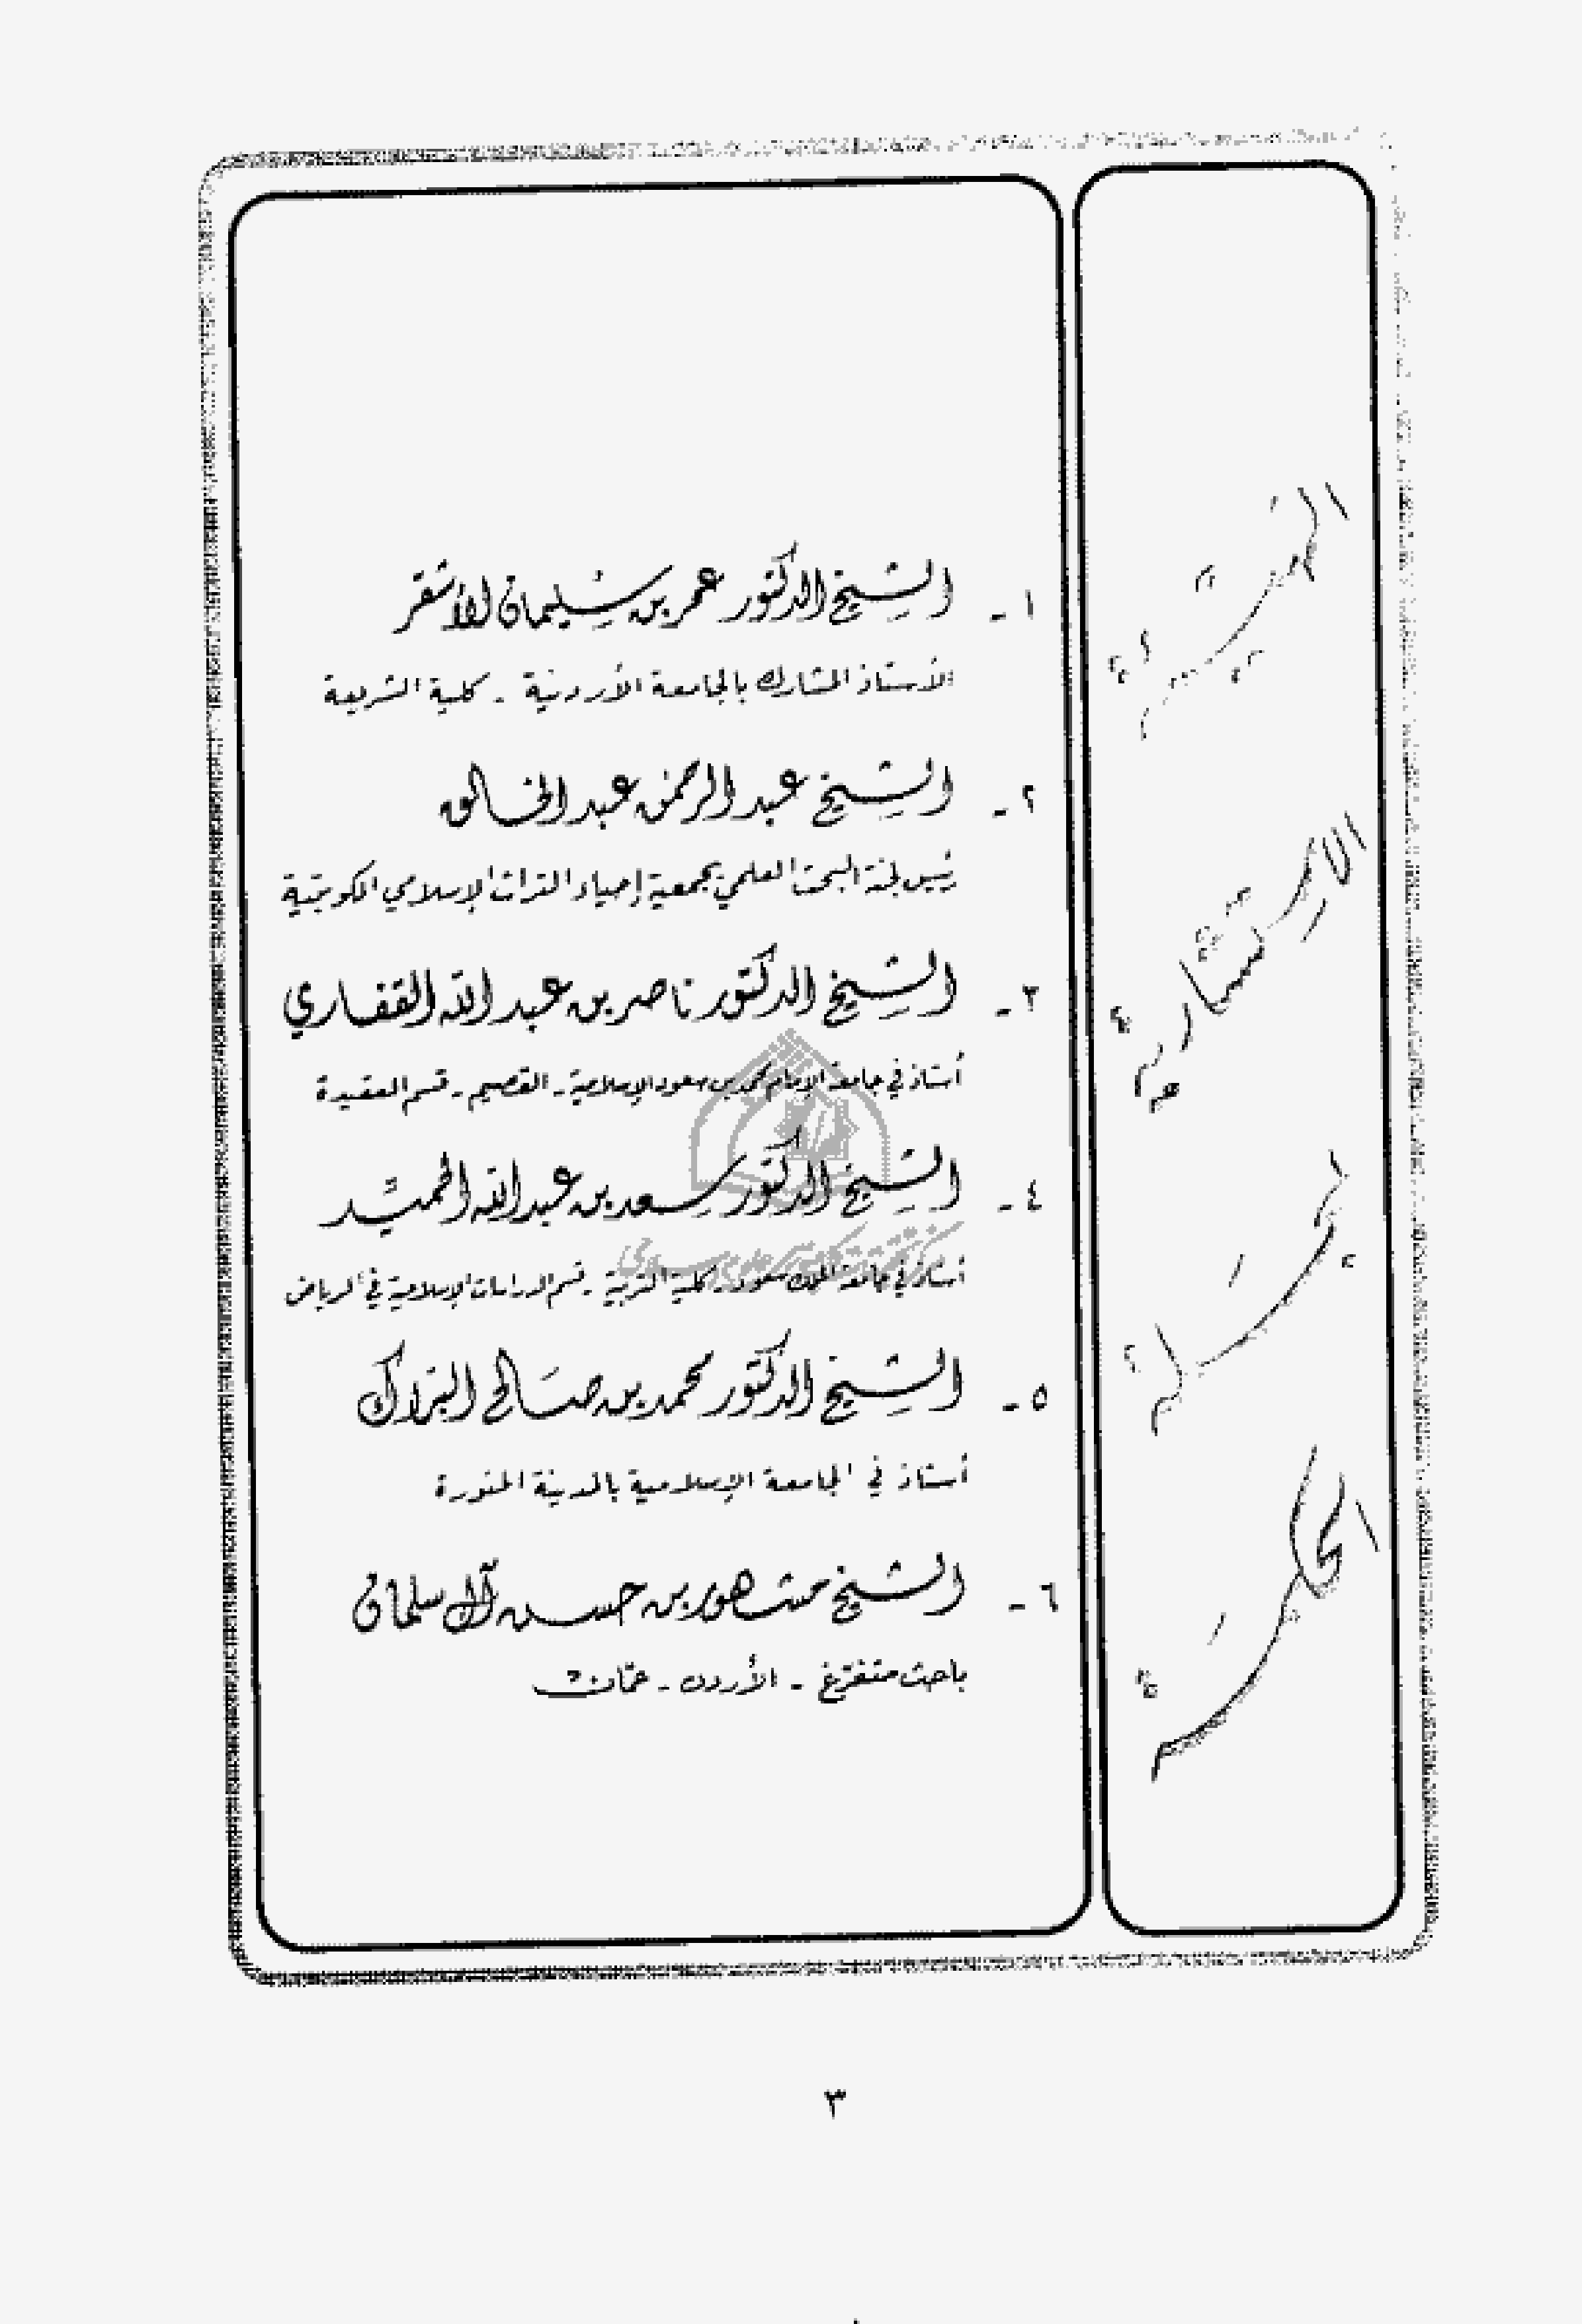 الهيئة
الاستشارية
لمجلة
الحكمة
١ - الشيخ الدكتور عمر بن سليمان الأشقر
الأستاذ المشارك بالجامعة الأردنية - كلية الشريعة
٢ - الشيخ عبد الرحمن عبد الخالق
رئيس لجنة البحث العلمي بجمعية إحياء التراث الإسلامي الكويتية
٣ - الشيخ الدكتور ناصر بن عبد الله القفاري
أستاذ في جامعة الإمام محمد بن سعود الإسلامية - القصيم - قسم العقيدة
٤ - الشيخ الدكتور سعد بن عبد الله الحميد
أستاذ في جامعة الملك سعود - كلية التربية - قسم الدراسات الإسلامية في الرياض
٥ - الشيخ الدكتور محمد بن صالح البراك
أستاذ في الجامعة الإسلامية بالمدينة المنورة
٦ - الشيخ مشهور بن حسن آل سلمان
باحث متفرغ - الأردن - عمّان
٣